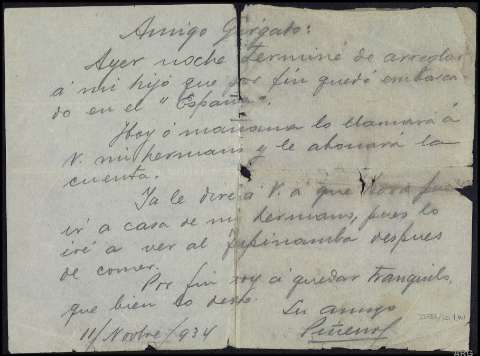 Amigo Gírgato:
Ayer noche terminé de arreglar
á mi hijo que por fin quedó embarca-
do en el "España".
Hoy ó mañana lo llamará á
V. mi hermano y le abonará la
cuenta.
Ya le diré á V. á que hora puede
ir á casa de mi hermano, pues lo
iré a ver al Tupinamba despues
de comer.
Por fin voy á quedar tranquilo,
que bien lo deseo.
Su amigo
11/Novbre/934